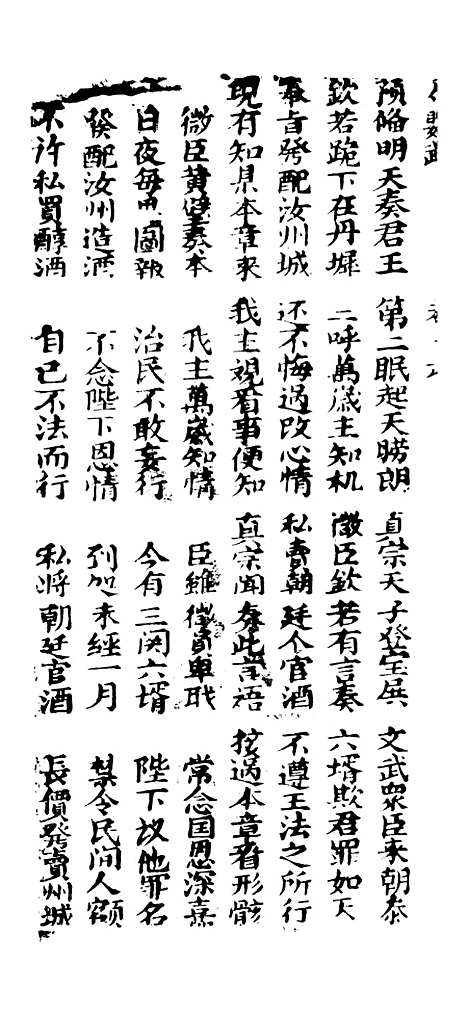 預偹明天奏君王 第二眠起天朗 真宗天子登宝 文武衆臣來朝
欽若跪下在丹墀 呼萬歲主知机 微臣欽若有言奏 六壻欺君罪如天
奉旨發配汝州城 还不悔過改心情 私賣朝廷个官酒 不遵王法之所行
現有知県本章來 我主視看事便知 真宗聞奏此言語 過本章看形骸
微臣黃奏本 我主萬歲知情 臣雖微員卑职 常念国恩深
日夜每思圖報 治民不敢妄行 今有三関六壻 陛下放他罪名
發配汝州造酒 不念陛下恩情 到処未經一月 禁令民间人額
不許私買醇酒 自己不法而行 私將朝廷官酒 長價發賣州城